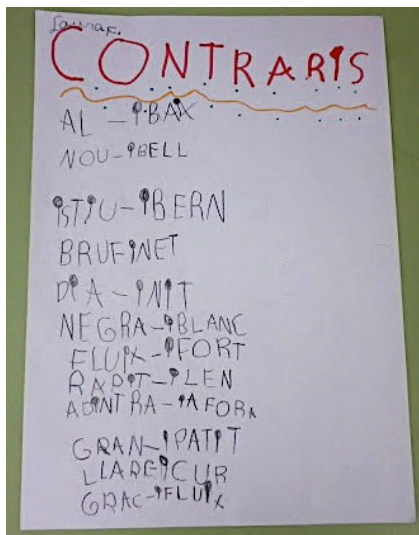 Laura F.
CONTRARIS
AL - IBAIX
NOU - IBELL
ISTIU - IBERN
BRUFINET
DIA - INIT
NEGRA - IBLANC
FLUIX - IFORT
RAPIT - ILEN
ADINTRA - IAFORA
GRAN - IPATIT
LLAREICUR
GRAC - IFLUIX